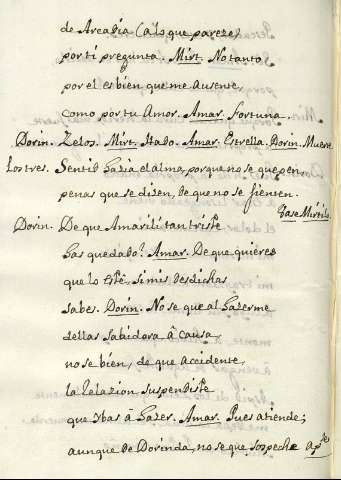 de Arcadia (a lo que parece)
por ti pregunta. Mirt. No tanto
por el es bien que me ausente,
como por tu Amor. Amar. Fortuna.
Dorin. Zelos. Mirt. Hado. Amar. Estrella. Dorin. Muere
Los tres. Sentid hazia el alma, porque no se quejen
penas que se dizen, de que no se sienten.
Vase Mirtilo
Dorin. De que Amarili tan triste
has quedado? Amar. De que quieres
que lo esté, si mis desdichas
sabes. Dorin. No se que al hazerme
dellas sabidora â causa,
no se bien, de que accidente,
la relazion suspendiste
que ybas â hazer. Amar. Pues atiende;
aunque de Dorinda, no se que sospeche apte